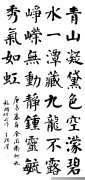 青山凝黛色空濛碧
水一潭藏九龍不露
崢嶸無動靜鍾靈毓
秀氣如虹